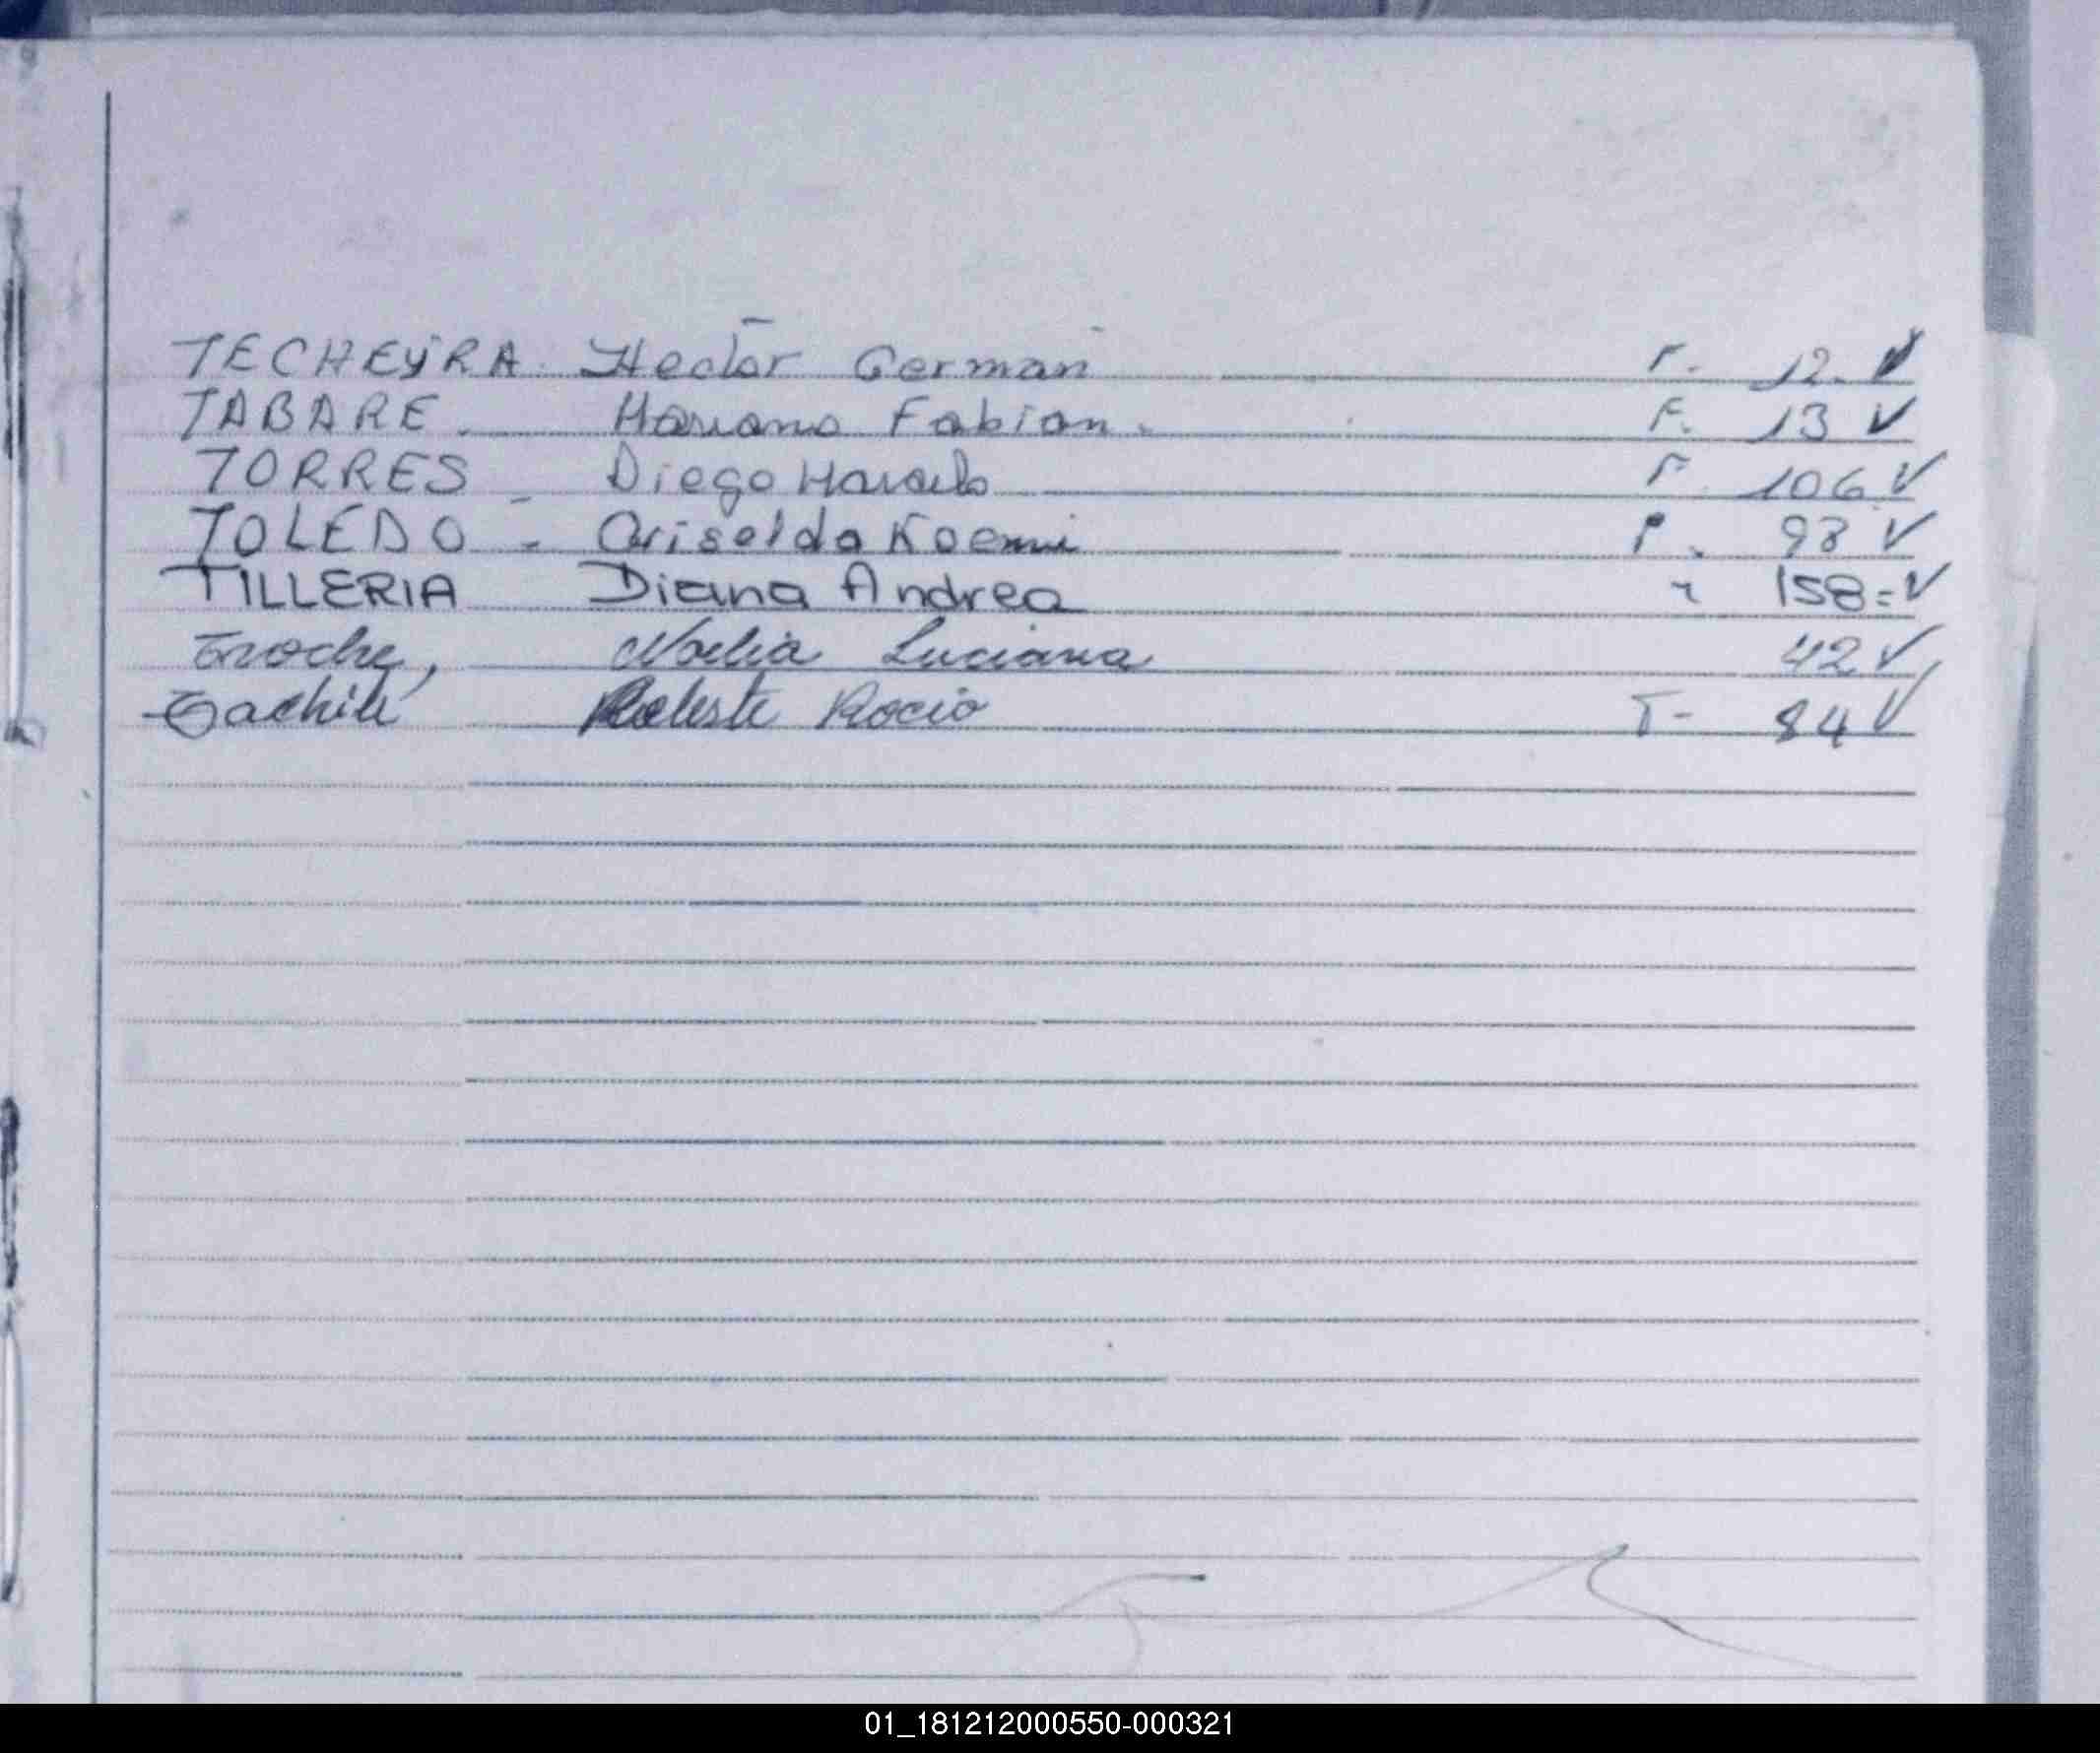 TECHEYRA Hector German F. 12. ✓
TABARE. Mariano Fabian. F. 13 ✓
TORRES - Diego Marcelo F. 106 ✓
TOLEDO - Griselda Noemi F. 98 ✓
TILLERIA Diana Andrea 158= ✓
Troche, Noelia Luciana 42 ✓
Celeste Rocio T- 84 ✓
01_181212000550-000321